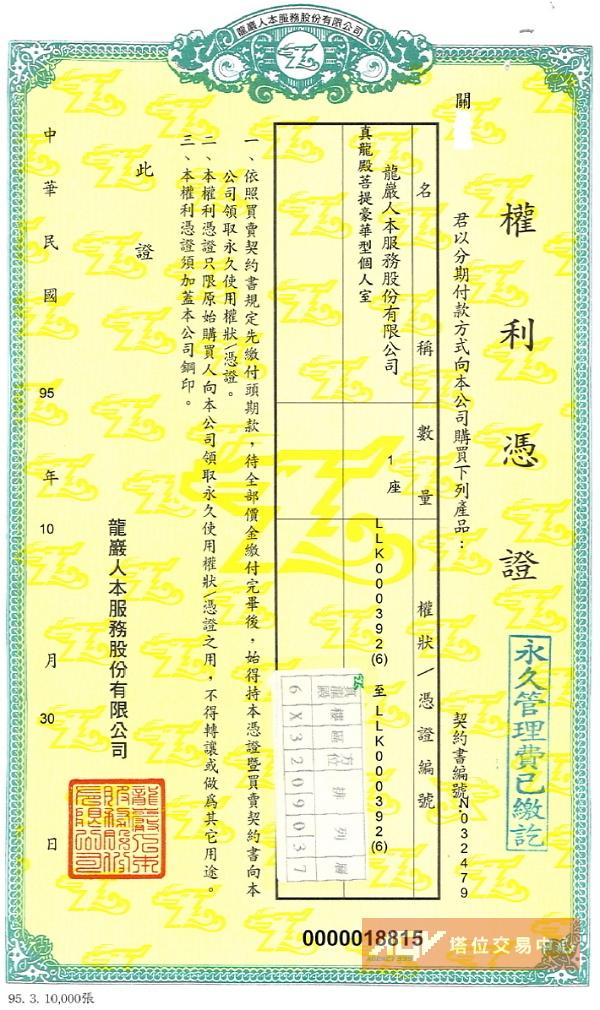 龍巖人本服務股份有限公司
權利憑證
契約書編號:N032479
關
君以分期付款方式向本公司購買下列產品：
名稱
數量
權狀/憑證編號
龍巖人本服務股份有限公司
真龍殿菩提豪華型個人室
1座
LLK000392(6) 至 LLK000392(6)
一、依照買賣契約書規定先繳付頭期款，待全部價金繳付完畢後，始得持本憑證暨買賣契約書向本
公司領取永久使用權狀/憑證。
二、本權利憑證只限原始購買人向本公司領取永久使用權狀/憑證之用，不得轉讓或做為其它用途。
三、本權利憑證須加蓋本公司鋼印。
此證
龍巖人本服務股份有限公司
中華民國95年10月30日
永久管理費已繳訖
真龍殿 樓 區 方位 排 列 層
6 X 3 2 0 9 0 3 7
0000018815
塔位交易中心
95. 3. 10,000張